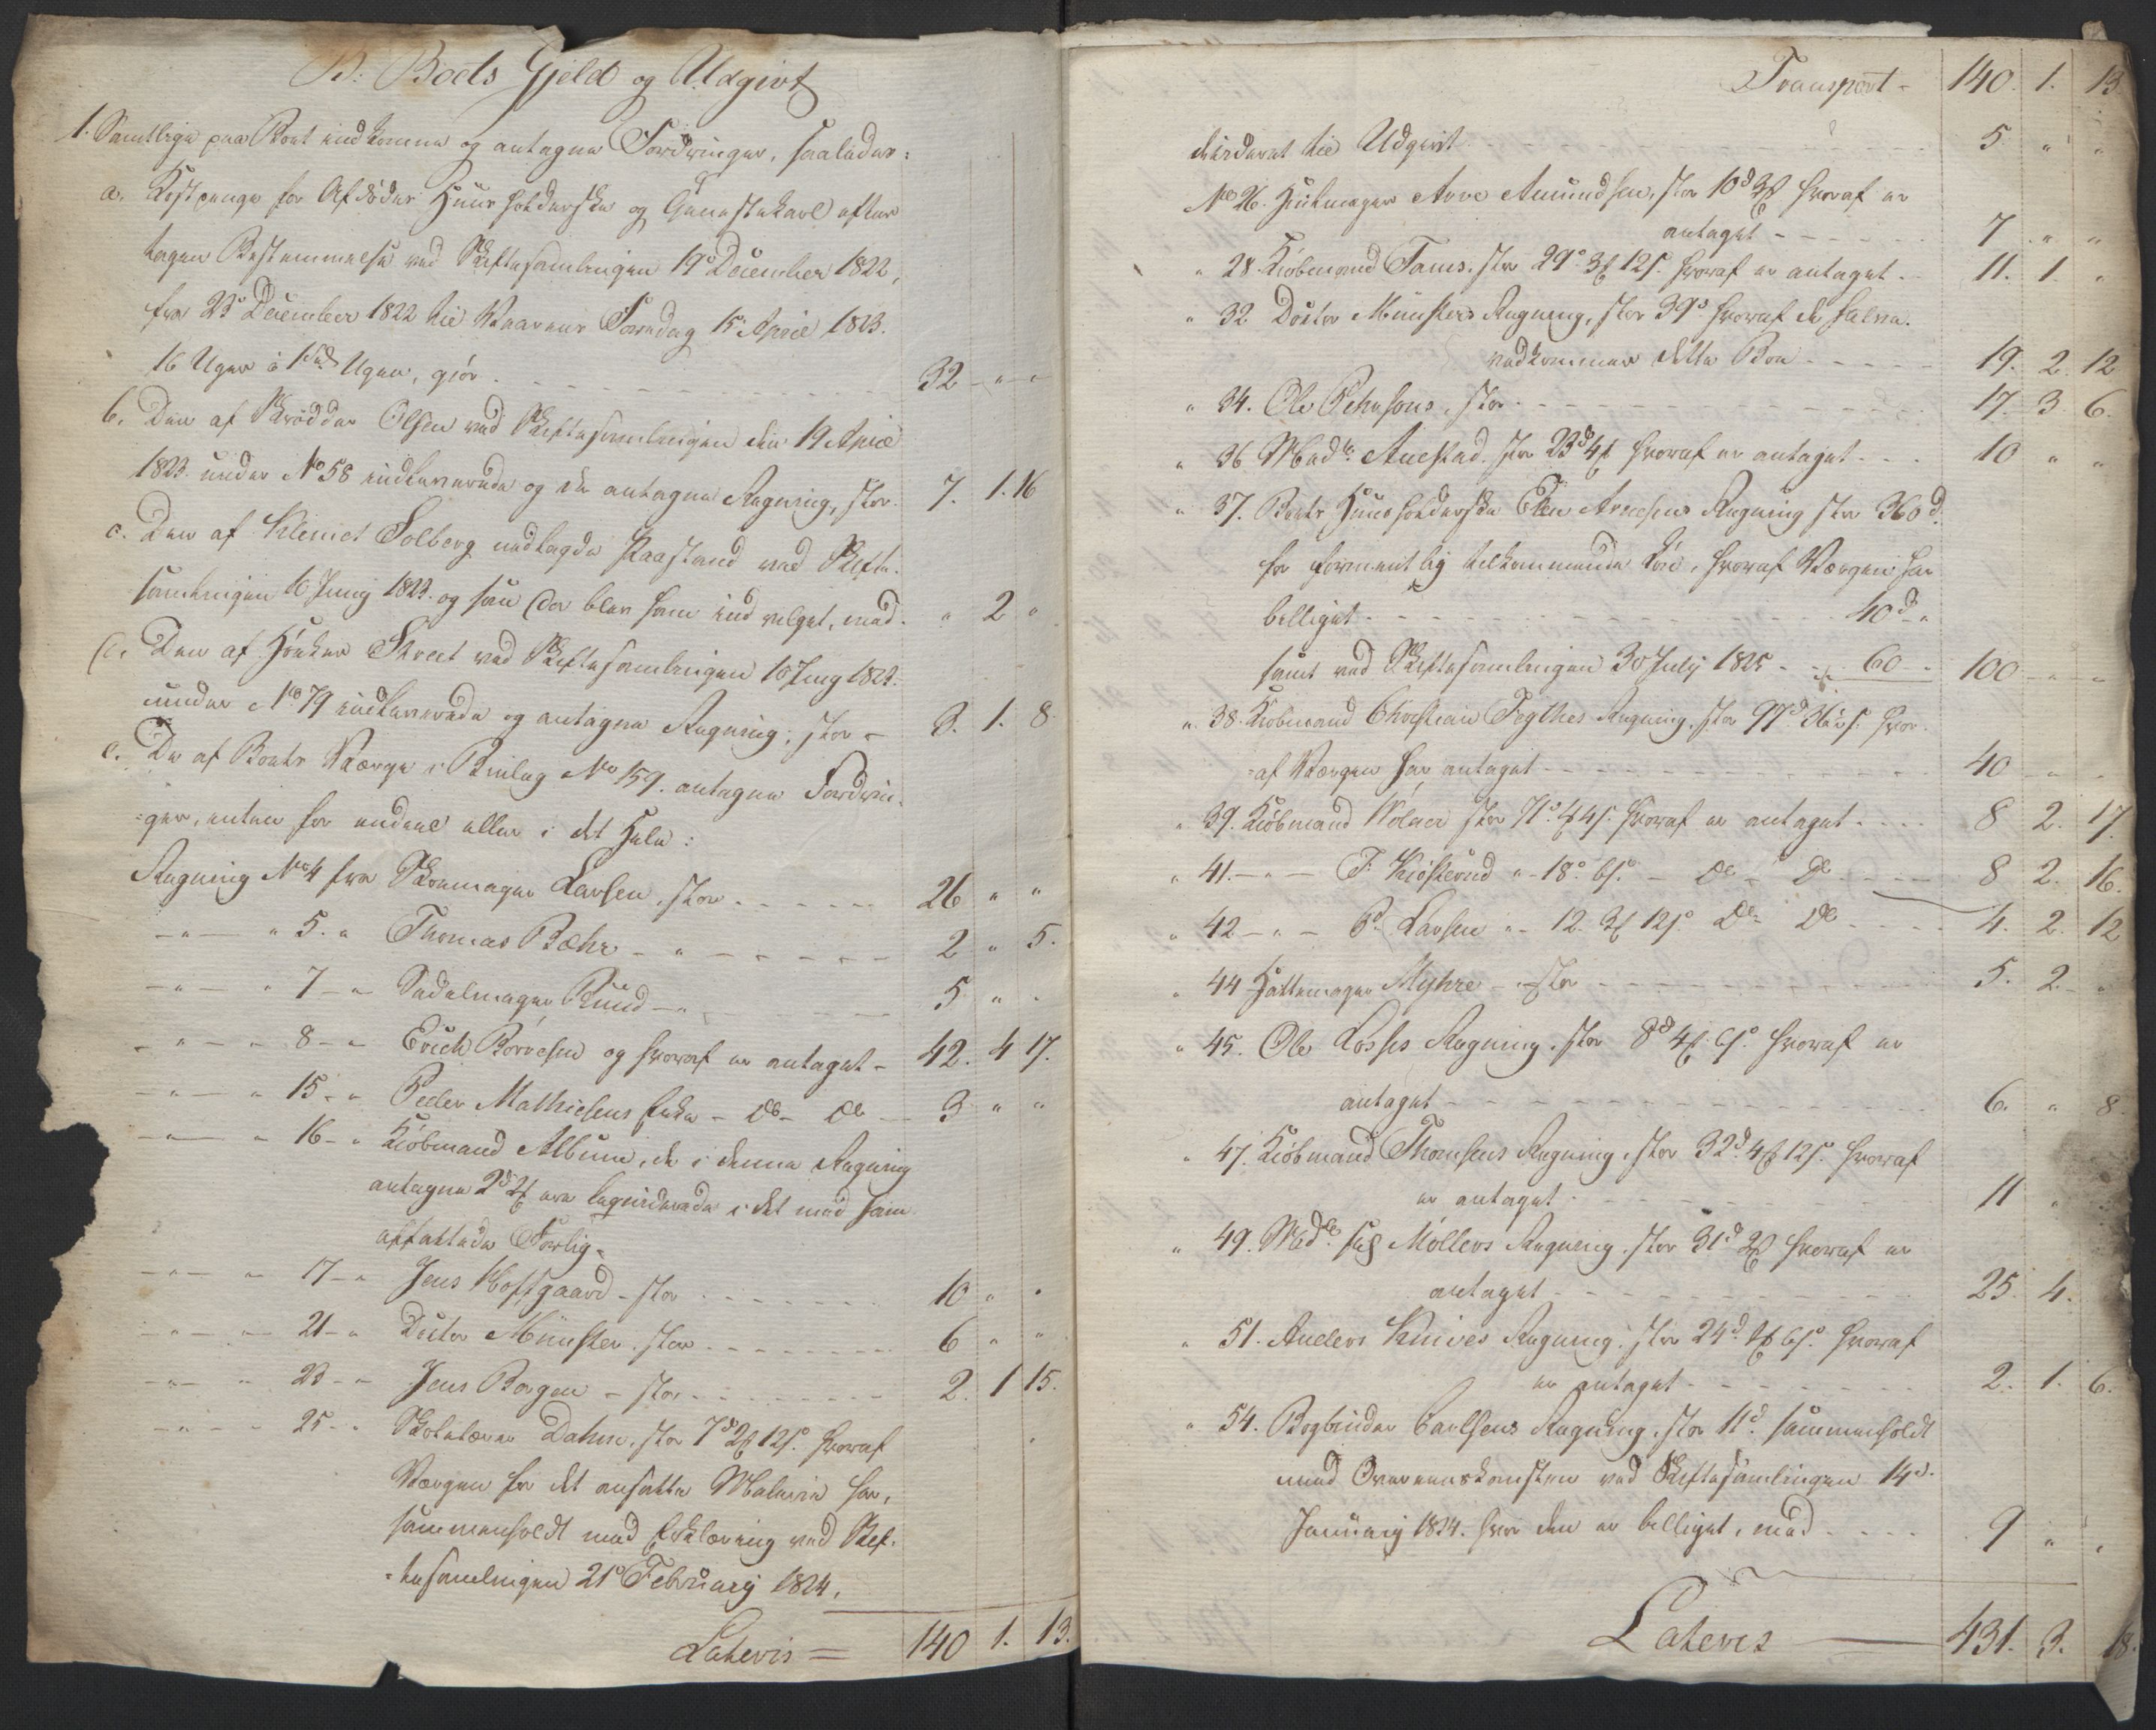 B: Boets Gjeld og Udgivt
1. Samtlige paa Boet indkomne og antagne Fordringer, saaledes:
a. Kostpenge for Afdødes Huusholderske og Gaardskarl efter
tagen Bestemmelse ved Skiftesamlingen 19de December 1822,
fra 23de December 1822 til Vaarens Faredag 15de April 1823.
16 Uger à 1 Spd Ugen, giør 32 " "
b. Den af Skrædder Olsen ved Skiftesamlingen den 19 April
1823 under No 58 indleverede og da antagne Regning, stor 7. 1. 16
c. Den af Klemet Solberg nedlagde Paastand ved Skifte-
samlingen 16 Juny 1823. og saa der blev ham indvilget, med " 2 "
d. Den af Høker Street ved Skiftesamlingen 16 Juny 1823.
under No 79 indleverede og antagne Regning, stor 3. 1. 8
e. De af Boets Værge i Beilag No 159. antagne Fordrin-
=ger, enten for endeel eller i det Hele:
Regning No 4 fra Skomager Larsen, stor 26 " "
" 5. " Thomas Bæhr 2 " 5.
" 7 " Sadelmager Ruud 5 " "
" 8 " Erich Børresen og hvoraf er antaget 42. 4 17.
" 15 " Peder Mathiesens Enke - Do - Do 3 " "
" 16 " Kiøbmand Album, de i denne Regning
antagne 2d 2 ere liqviderede i det med ham
affattede Forlig.
" 17 " Jens Hoffgaard - stor 10 " "
" 21 " Doctor Münster, stor 6 " "
" 23 " Jens Borgen - stor 2. 1 15.
" 25 " Skolelærer Dahm, stor 7d 2 12s. hvoraf
Værgen for det ansatte Malerie har,
sammenholdt med Erklæring ved Skif-
=tesamlingen 21de February 1824,
Lateris = 140 1. 13.
Transport - 140. 1. 13
til Udgivt 5 " "
No 26. Hiulmager Arve Amundsen, stor 10d 3 hvoraf er
antaget 7 " "
" 28. Kiøbmand Tams, stor 29d 3 12s. hvoraf er antaget 11. 1. "
" 32 Doctor Münsters Regning, stor 39d hvoraf de halve
vedkommer dette Boe 19. 2. 12
" 34. Ole Pehrsons, stor 17. 3. 6.
" 36 Made Anestad, stor 23d 4 hvoraf er antaget 10 " "
" 37. Boets Huusholderske Elen Arnesens Regning stor 360d.
for formentlig tilkommende Løn, hvoraf Værgen har
billiget 40d "
samt ved Skiftesamlingen 30 July 1825 60 " 100 " "
" 38. Kiøbmand Christian Fythes Regning, stor 97d hvor-
=af Værgen har antaget 40 " "
" 39. Kiøbmand Wolner stor 71d 4 4s. hvoraf er antaget 8 2. 17.
" 41. " F. Kiøsterud " 18d 6s. - Do - Do 8 2. 16.
" 42 " P. Larsen " 12. 3 12s Do Do 4. 2. 12
" 44 Hattemager Myhre - stor 5. 2. "
" 45. Ole Losses Regning, stor 8d 4 6s. hvoraf er
antaget 6. " 8.
" 47. Kiøbmand Thomsens Regning, stor 32d 4 12s. hvoraf
er antaget 11 "
" 49. Made sal. Møllers Regning, stor 31d 2 hvoraf er
antaget 25. 4.
" 51. Anders Knives Regning, stor 24d 6s. hvoraf
er antaget 2. 1. 6.
" 54. Bogbinder Carlsens Regning, stor 11d. sammenholdt
med Overeenskomsten ved Skiftesamlingen 14de
January 1824. hvor den er billiget, med 9 " "
Lateris 431. 3. 18.